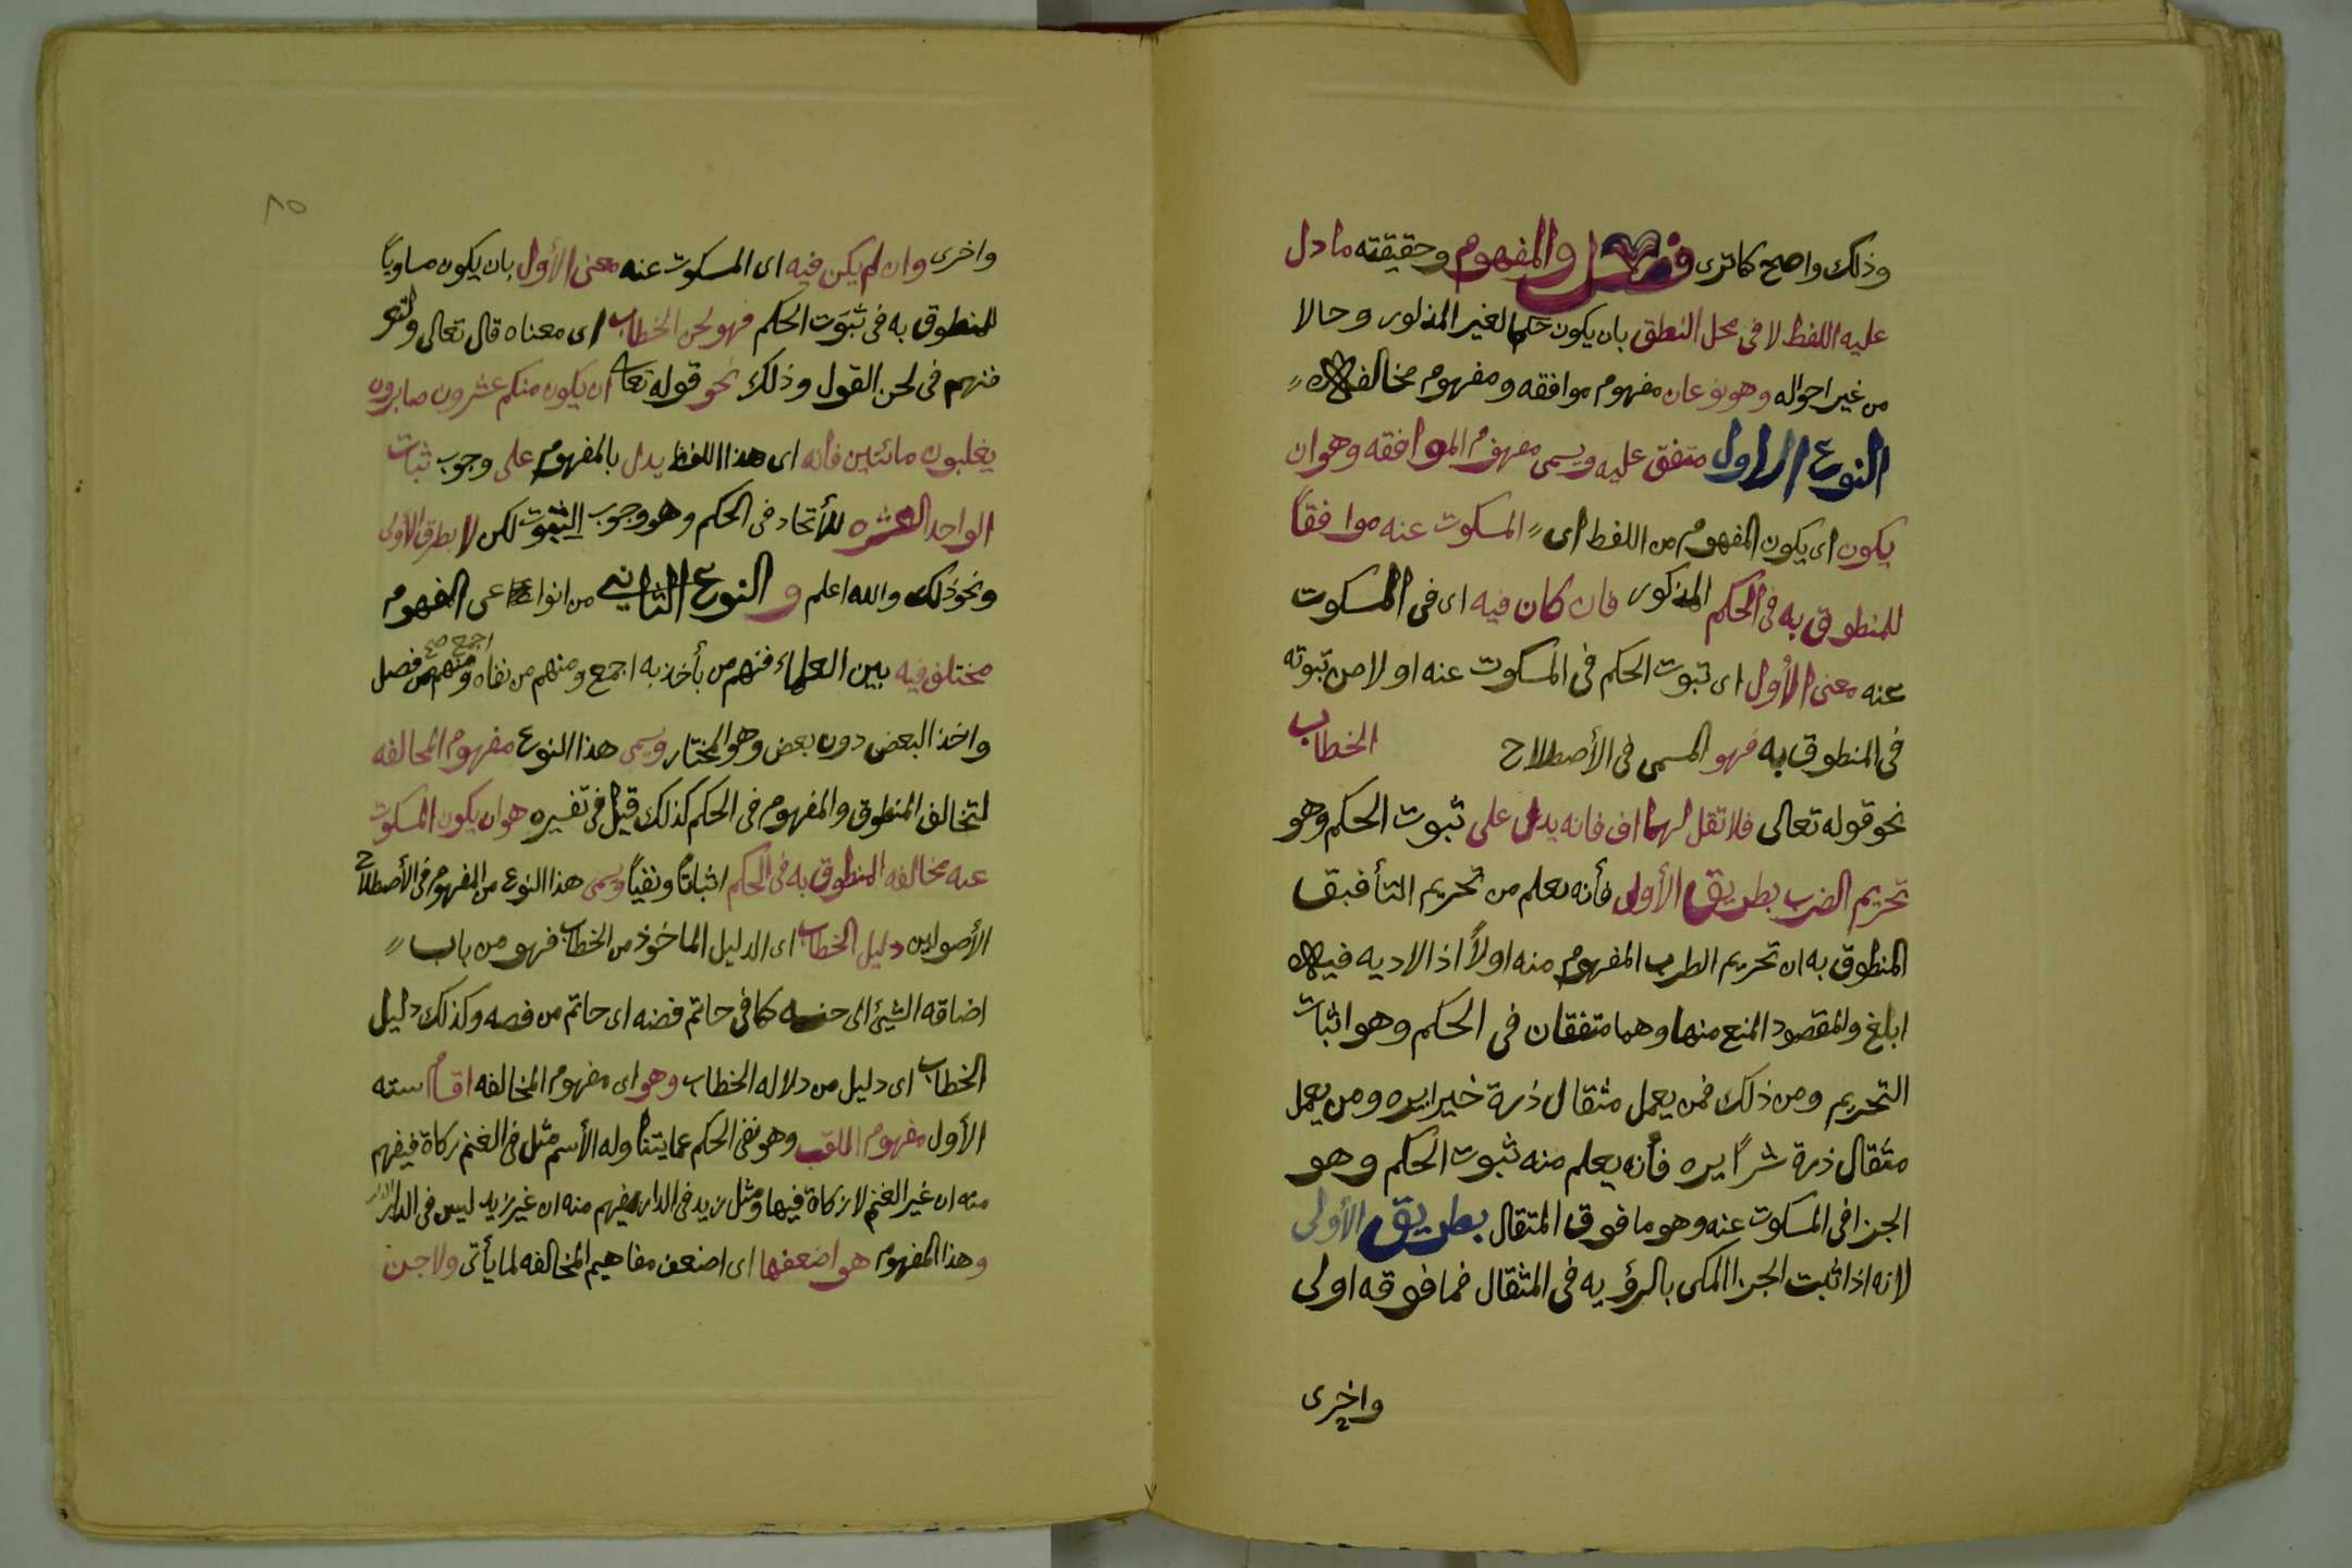 وذلك واضح كما ترى فصل والمفهوم وحقيقته ما دل
عليه اللفظ لا في محل النطق بان يكون حكما لغير المذكور وحالا
من غير احواله وهو نوعان مفهوم موافقه ومفهوم مخالفه
النوع الاول متفق عليه ويسمى مفهوم الموافقه وهو ان
يكون اى يكون المفهوم من اللفظ اى المسكوت عنه موافقاً
للمنطوق به في الحكم المذكور فان كان فيه اى في المسكوت
عنه معنى الأول اى ثبوت الحكم في المسكوت عنه اولا من ثبوته
في المنطوق به فهو المسمى في الأصطلاح الخطاب
نحو قوله تعالى فلا تقل لهما اف فانه يدل على ثبوت الحكم وهو
تحريم الضرب بطريق الأولى فأنه يعلم من تحريم التأفيف
المنطوق به ان تحريم الضرب المفهوم منه اولاً اذ الاديه فيه
ابلغ والمقصود المنع منها وهما متفقان في الحكم وهو اثبات
التحريم ومن ذلك فمن يعمل مثقال ذرة خيرا يره ومن يعمل
مثقال ذرة شراً يره فأنه يعلم منه ثبوت الحكم وهو
الجزا في المسكوت عنه وهو ما فوق المثقال بطريق الأولى
لانه اذا ثبت الجزا المكى بالرؤيه في المثقال فما فوقه اولى
واخرى
٨٥
واخرى وان لم يكن فيه اى المسكوت عنه معنى الأول بان يكون مساوياً
للمنطوق به في ثبوت الحكم فهو لحن الخطاب اى معناه قال تعالى ولتعر
فنهم في لحن القول وذلك نحو قوله تعا ان يكون منكم عشرون صابرون
يغلبون مائتين فأنه اى هذا اللفظ يدل بالمفهوم على وجوب ثبات
الواحد للعشره للأتحاد في الحكم وهو وجوب الثبوت لكن لا بطرق الأولى
ونحو ذلك والله اعلم و النوع الثاني من انواع المفهوم
مختلف فيه بين العلماء فمنهم من يأخذ به اجمع ومنهم من نفاه اجمع صح ومنهم من فصل
واخذ البعض دون بعض وهو المختار ويسمى هذا النوع مفهوم المخالفه
لتخالف المنطوق والمفهوم في الحكم كذلك قيل في تفسيره هو ان يكون المسكوت
عنه مخالفه المنطوق به في الحكم اثباتاً ونفياً ويسمى هذا النوع من المفهوم في الأصطلاح
الأصولين دليل الخطاب اى الدليل الماخوذ من الخطاب فهو من باب
اضافه الشيئ الى جنسه كما في خاتم فضه اى خاتم من فصه وكذلك دليل
الخطاب اى دليل من دلاله الخطاب وهو اى مفهوم المخالفه اقسام سته
الأول مفهوم اللقب وهو نفى الحكم عما يتناوله الأسم مثل في الغنم زكاة فيفهم
منه ان غير الغنم لا زكاة فيها ومثل زيد في الدار يفهم منه ان غير زيد ليس في الدار
وهذا المفهوم هو اضعفها اى اضعف مفاهيم المخالفه لما يأتى ولاجن